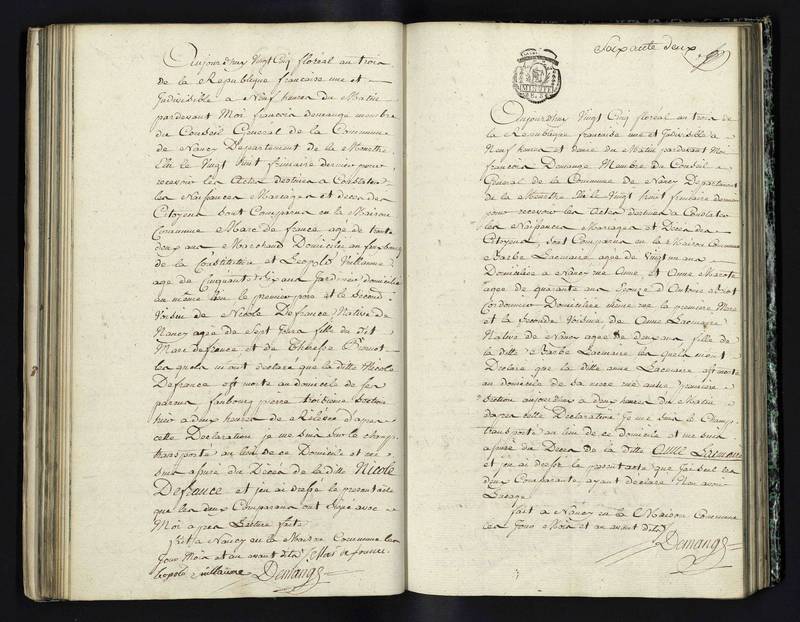 Aujourdhuy Vingt Cinq floréal an trois
de la République francaise une et
Indivisible a Neuf heures du Matin
pardevant Moi francois demange membre
du Conseil General de la Commune
de Nancy Departement de la Meurthe
Elu le Vingt huit frimaire dernier pour
recevoir les Actes destinés a Constater
les Naissances Mariages et deces des
Citoyens Sont Comparus en la Maison
Commune Marc de france agé de trente
deux ans Marchand Domicilié au faubourg
de la Constitution et Léopold Vuillaume
agé de Cinquante Six ans Jardinier domicilié
au même lieu le premier pere et le Second
Voisin de Nicole Defrance Native de
Nancy agée de Sept fille du dit
Marc defrance et de Therese
lesquels m'ont declaré que la ditte Nicole
Defrance est morte au domicile de ses
parens faubourg pierre troisieme Section
hier a deux heures de d'apres
cette Declaration je me suis sur le champ
transporté au lieu de ce Domicile et me
suis assuré du Décés de la ditte Nicole
Defrance et j'en ai dressé le present acte
que les deux Comparans ont signé avec
Moi apres Lecture faite
fait a Nancy en la Maison Commune les
Jour Mois et an avant dits Marc de france
leopold Vuillaume Demange
Soixante deux
Aujourdhuy Vingt Cinq floréal an trois de
la Republique francaise une et Indivisible a
Neuf heures et demie du Matin pardevant Moi
francois Demange Membre du Conseil
General de la Commune de Nancy Departement
de la Meurthe Elu le Vingt huit frimaire dernier
pour recevoir les Actes destinés a Constater
les Naissances Mariages et Deces des
Citoyens, Sont Comparus en la Maison Commune
Barbe Lacmaire agée de Vingt un ans
Domiciliée a Nancy rue et Anne Marote
agée de quarante ans Epouse d'Antoine
Cordonnier Domiciliée même rue la premiere Mere
et la Seconde Voisine de Anne Lacmaire
Native de Nancy agée de deux ans fille de
la ditte Barbe Lacmaire lesquels m'ont
Declaré que la ditte anne Lacmaire est morte
au domicile de sa mere rue premiere
Section aujourdhuy a deux heures du Matin
dapres cette Declaration je me suis le Champ
transporté au lieu de ce domicile et me suis
assuré du Deces de la ditte Anne Lacmaire
et j'en ai dressé le present acte que j'ai seul les
deux Comparants ayant declaré Non avoir
L'usage
fait a Nancy en la Maison Commune
les Jour Mois et an avant dits
Demange